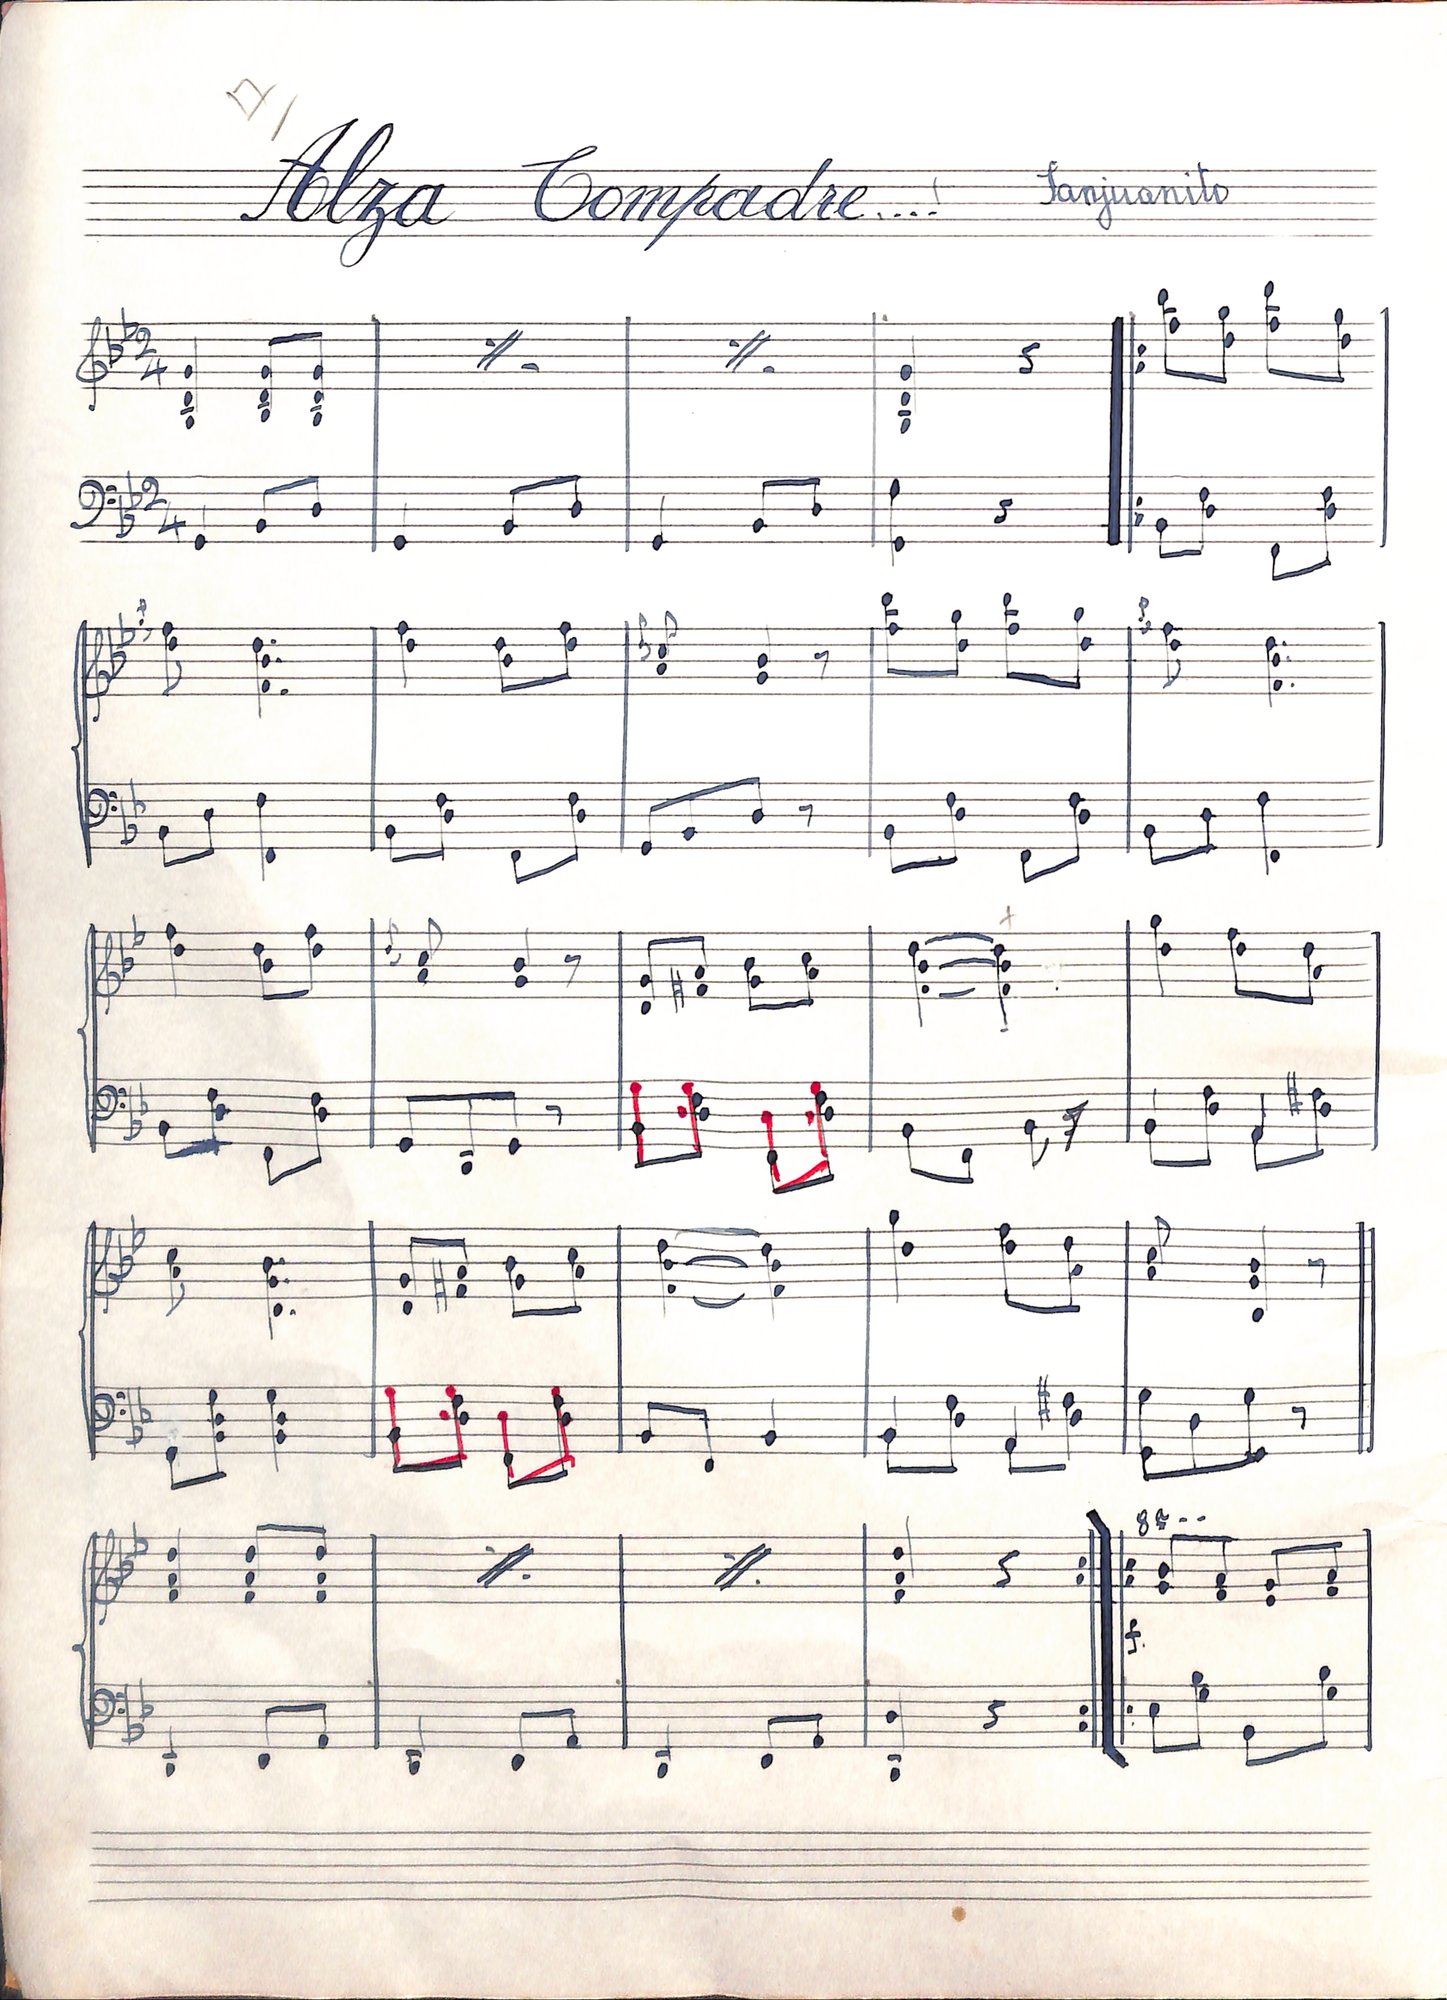 Alza Compadre....! Sanjuanito
2
4
2
4
8ª--
f.